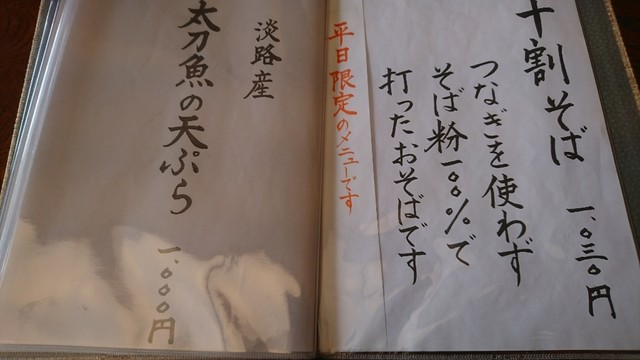 十割そば
一、〇三〇円
つなぎを使わず
そば粉一〇〇%で
打ったおそばです
平日限定のメニューです
淡路産
太刀魚の天ぷら
一、〇〇〇円